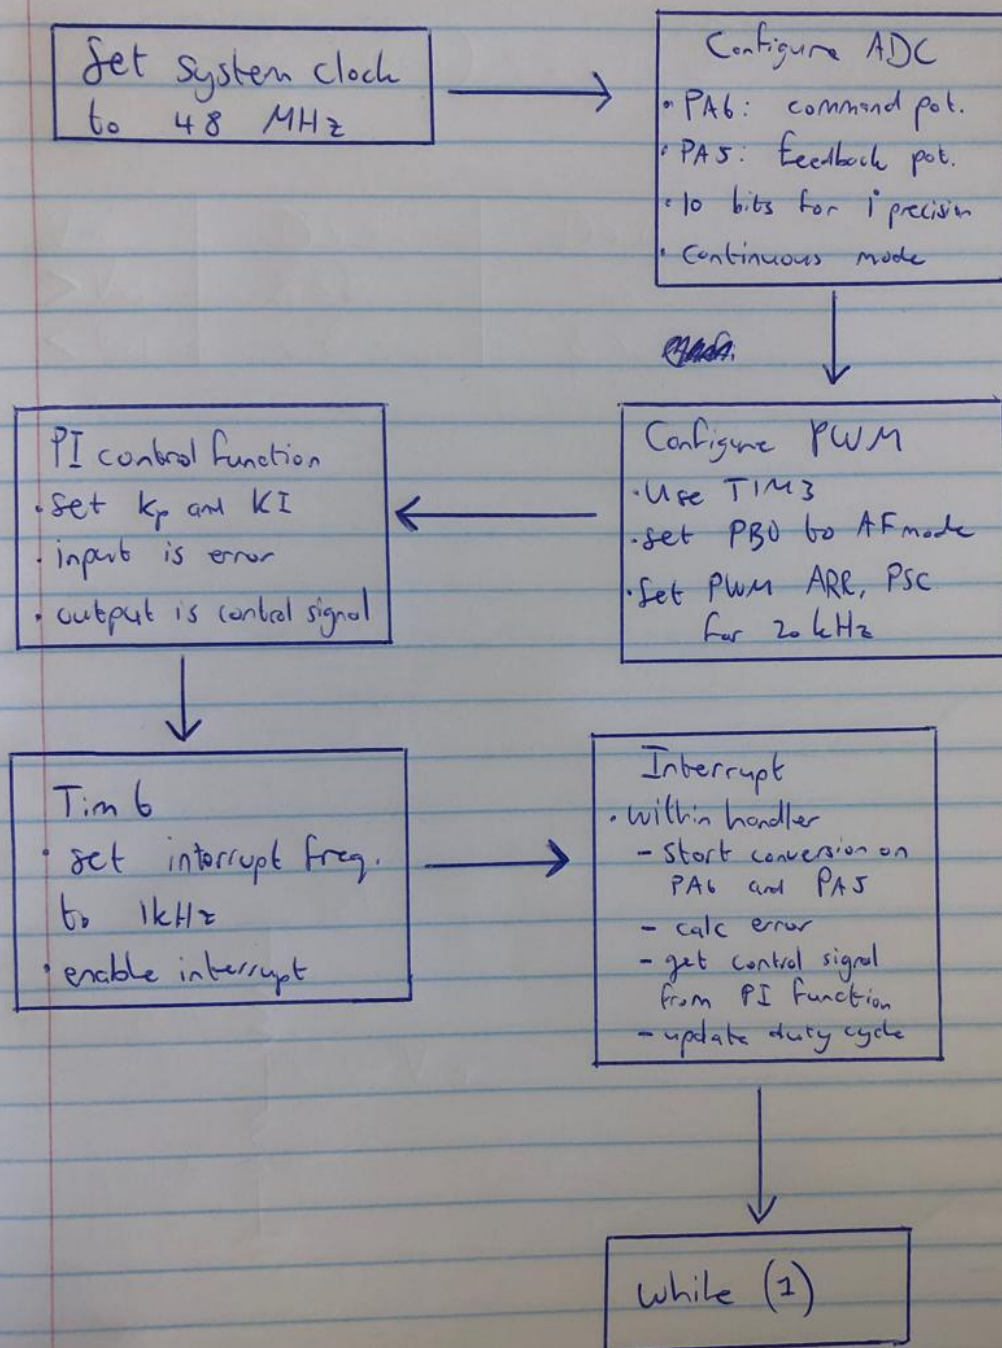 Set system clock
to 48 MHz
Configure ADC
• PA6: command pot.
• PA5: feedback pot.
• 10 bits for 1° precision
• Continuous mode
Configure PWM
• Use TIM3
• set PB0 to AF mode
• Set PWM ARR, PSC
for 20 kHz
PI control function
• set Kp and KI
• input is error
• output is control signal
Tim 6
• set interrupt freq.
to 1kHz
• enable interrupt
Interrupt
• within handler
- Start conversion on
PA6 and PA5
- calc error
- get control signal
from PI function
- update duty cycle
while (1)